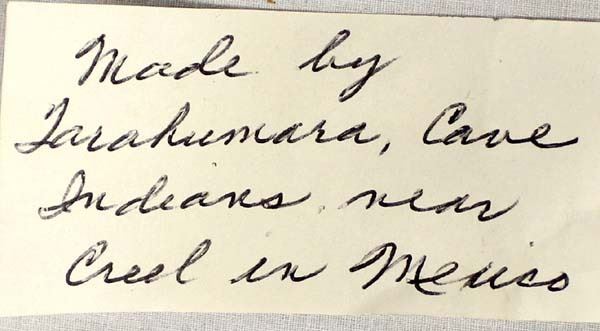 Made by
Tarahumara, Cave
Indians near
Creel in Mexico